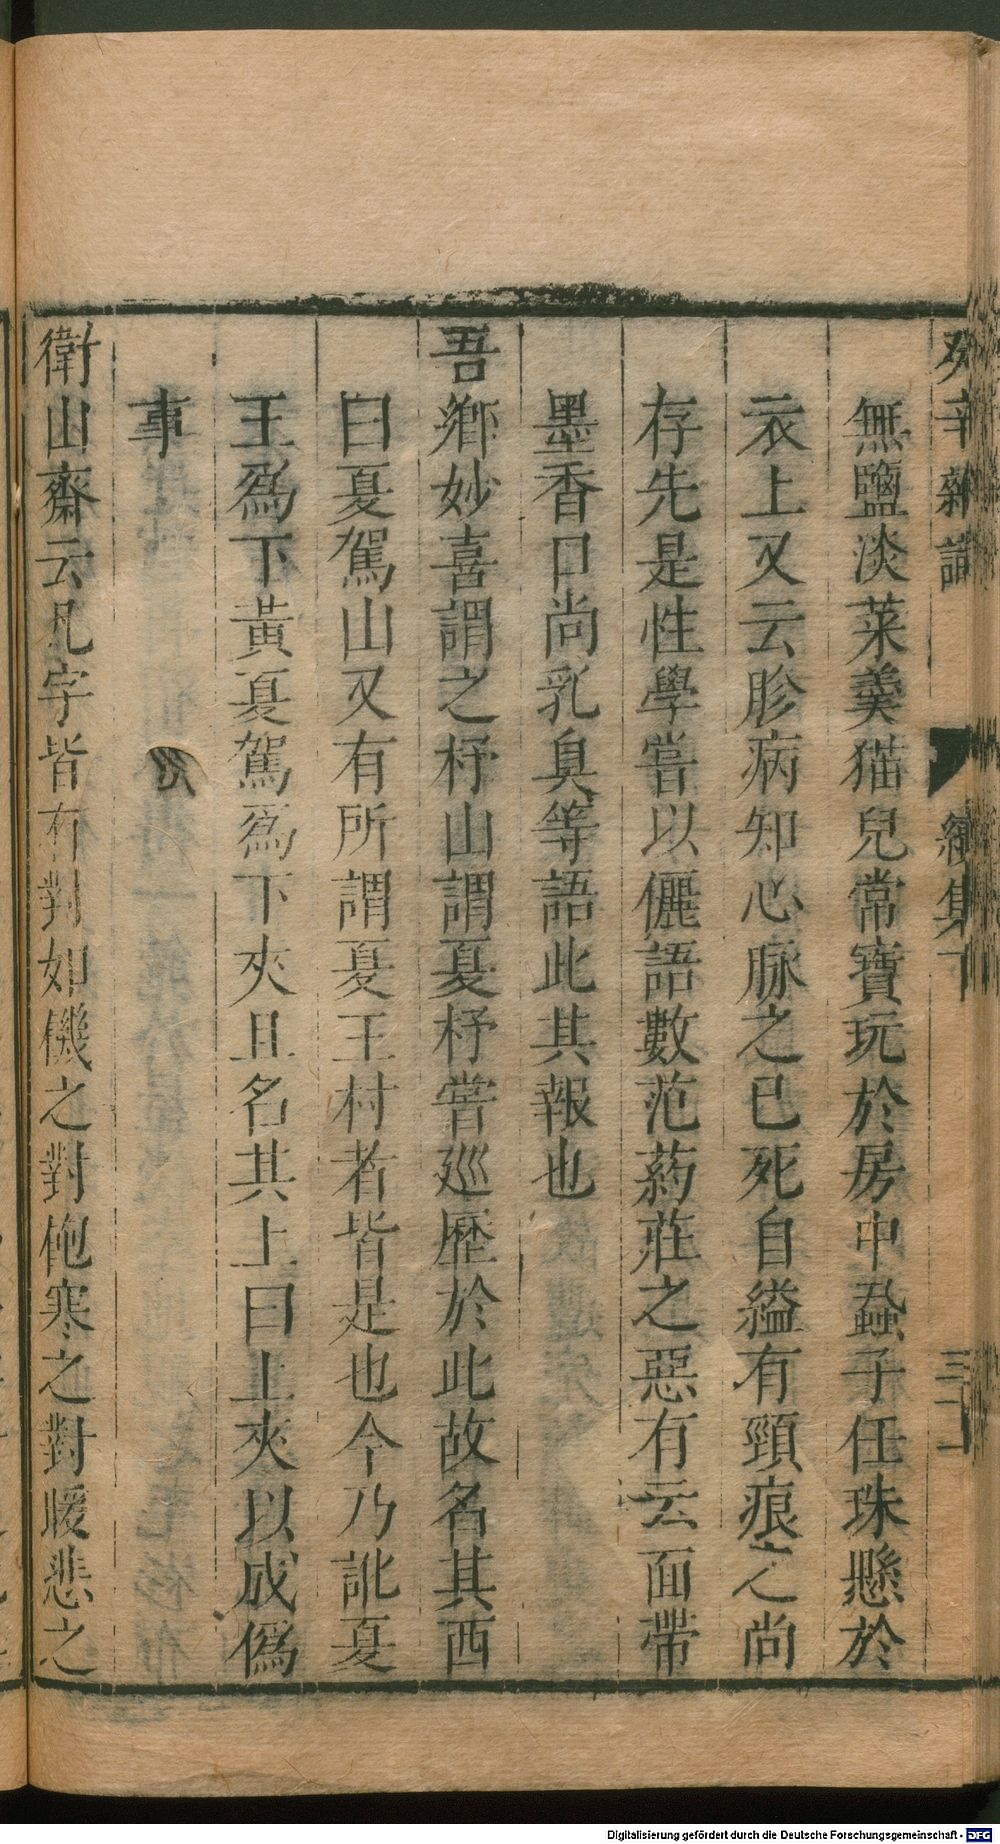 癸辛雜識
續集下
三十一
無鹽淡菜羹猫兒常寶玩於房中蝨子任珠懸於
衣上又云胗病知心脉之已死自縊有頸痕之尚
存先是性學嘗以儷語數范葯莊之惡有云面帶
墨香口尚乳臭等語此其報也
吾鄉妙喜謂之杼山謂夏杼嘗巡歷於此故名其西
曰夏駕山又有所謂夏王村者皆是也今乃訛夏
王爲下黃夏駕爲下夾且名其上曰上夾以成僞
事
衛山齋云凡字皆有對如饑之對飽寒之對暖悲之
Digitalisierung gefördert durch die Deutsche Forschungsgemeinschaft - DFG